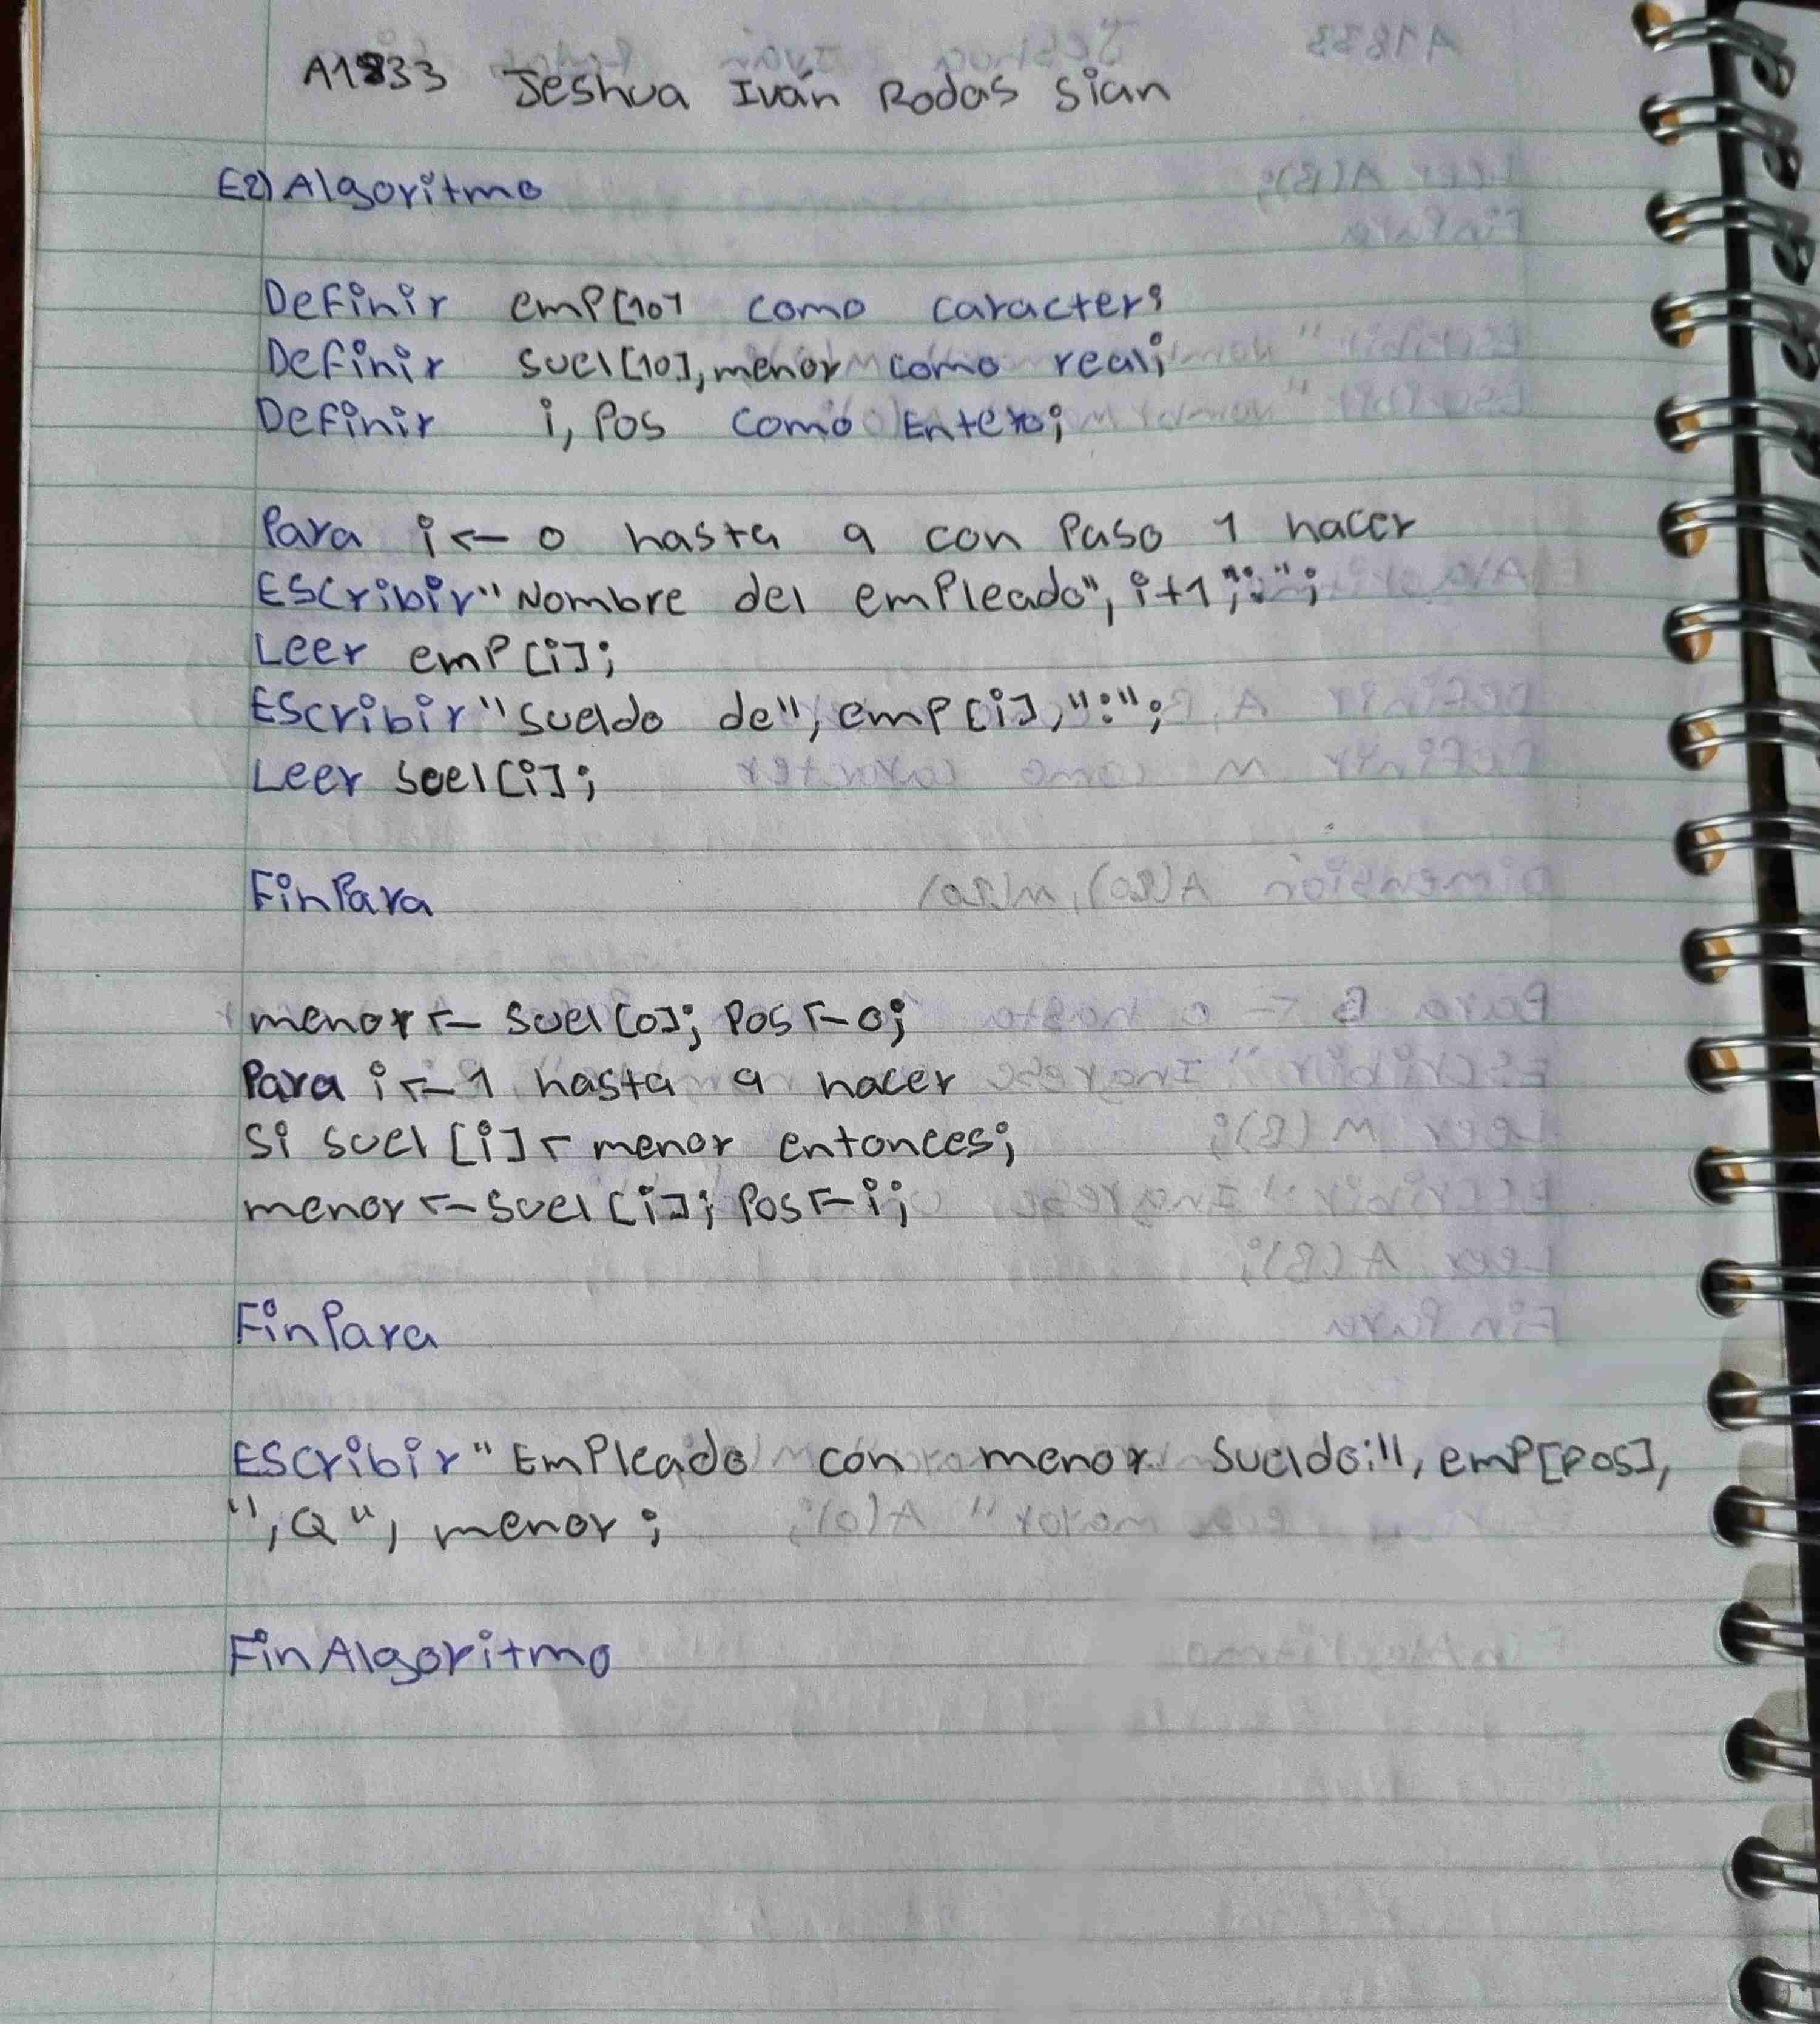 A1833 Jeshua Iván Rodas Sian
E2) Algoritmo
Definir emp[10] como caracter;
Definir suel[10], menor como real;
Definir i, Pos como Entero;
Para i ← 0 hasta 9 con Paso 1 hacer
Escribir "Nombre del empleado", i+1, ":";
Leer emp[i];
Escribir "sueldo de", emp[i], ":";
Leer suel[i];
FinPara
menor ← suel[0]; Pos ← 0;
Para i ← 1 hasta 9 hacer
Si suel[i] < menor entonces;
menor ← suel[i]; Pos ← i;
FinPara
Escribir "Empleado con menor sueldo:", emp[Pos],
", Q", menor;
FinAlgoritmo